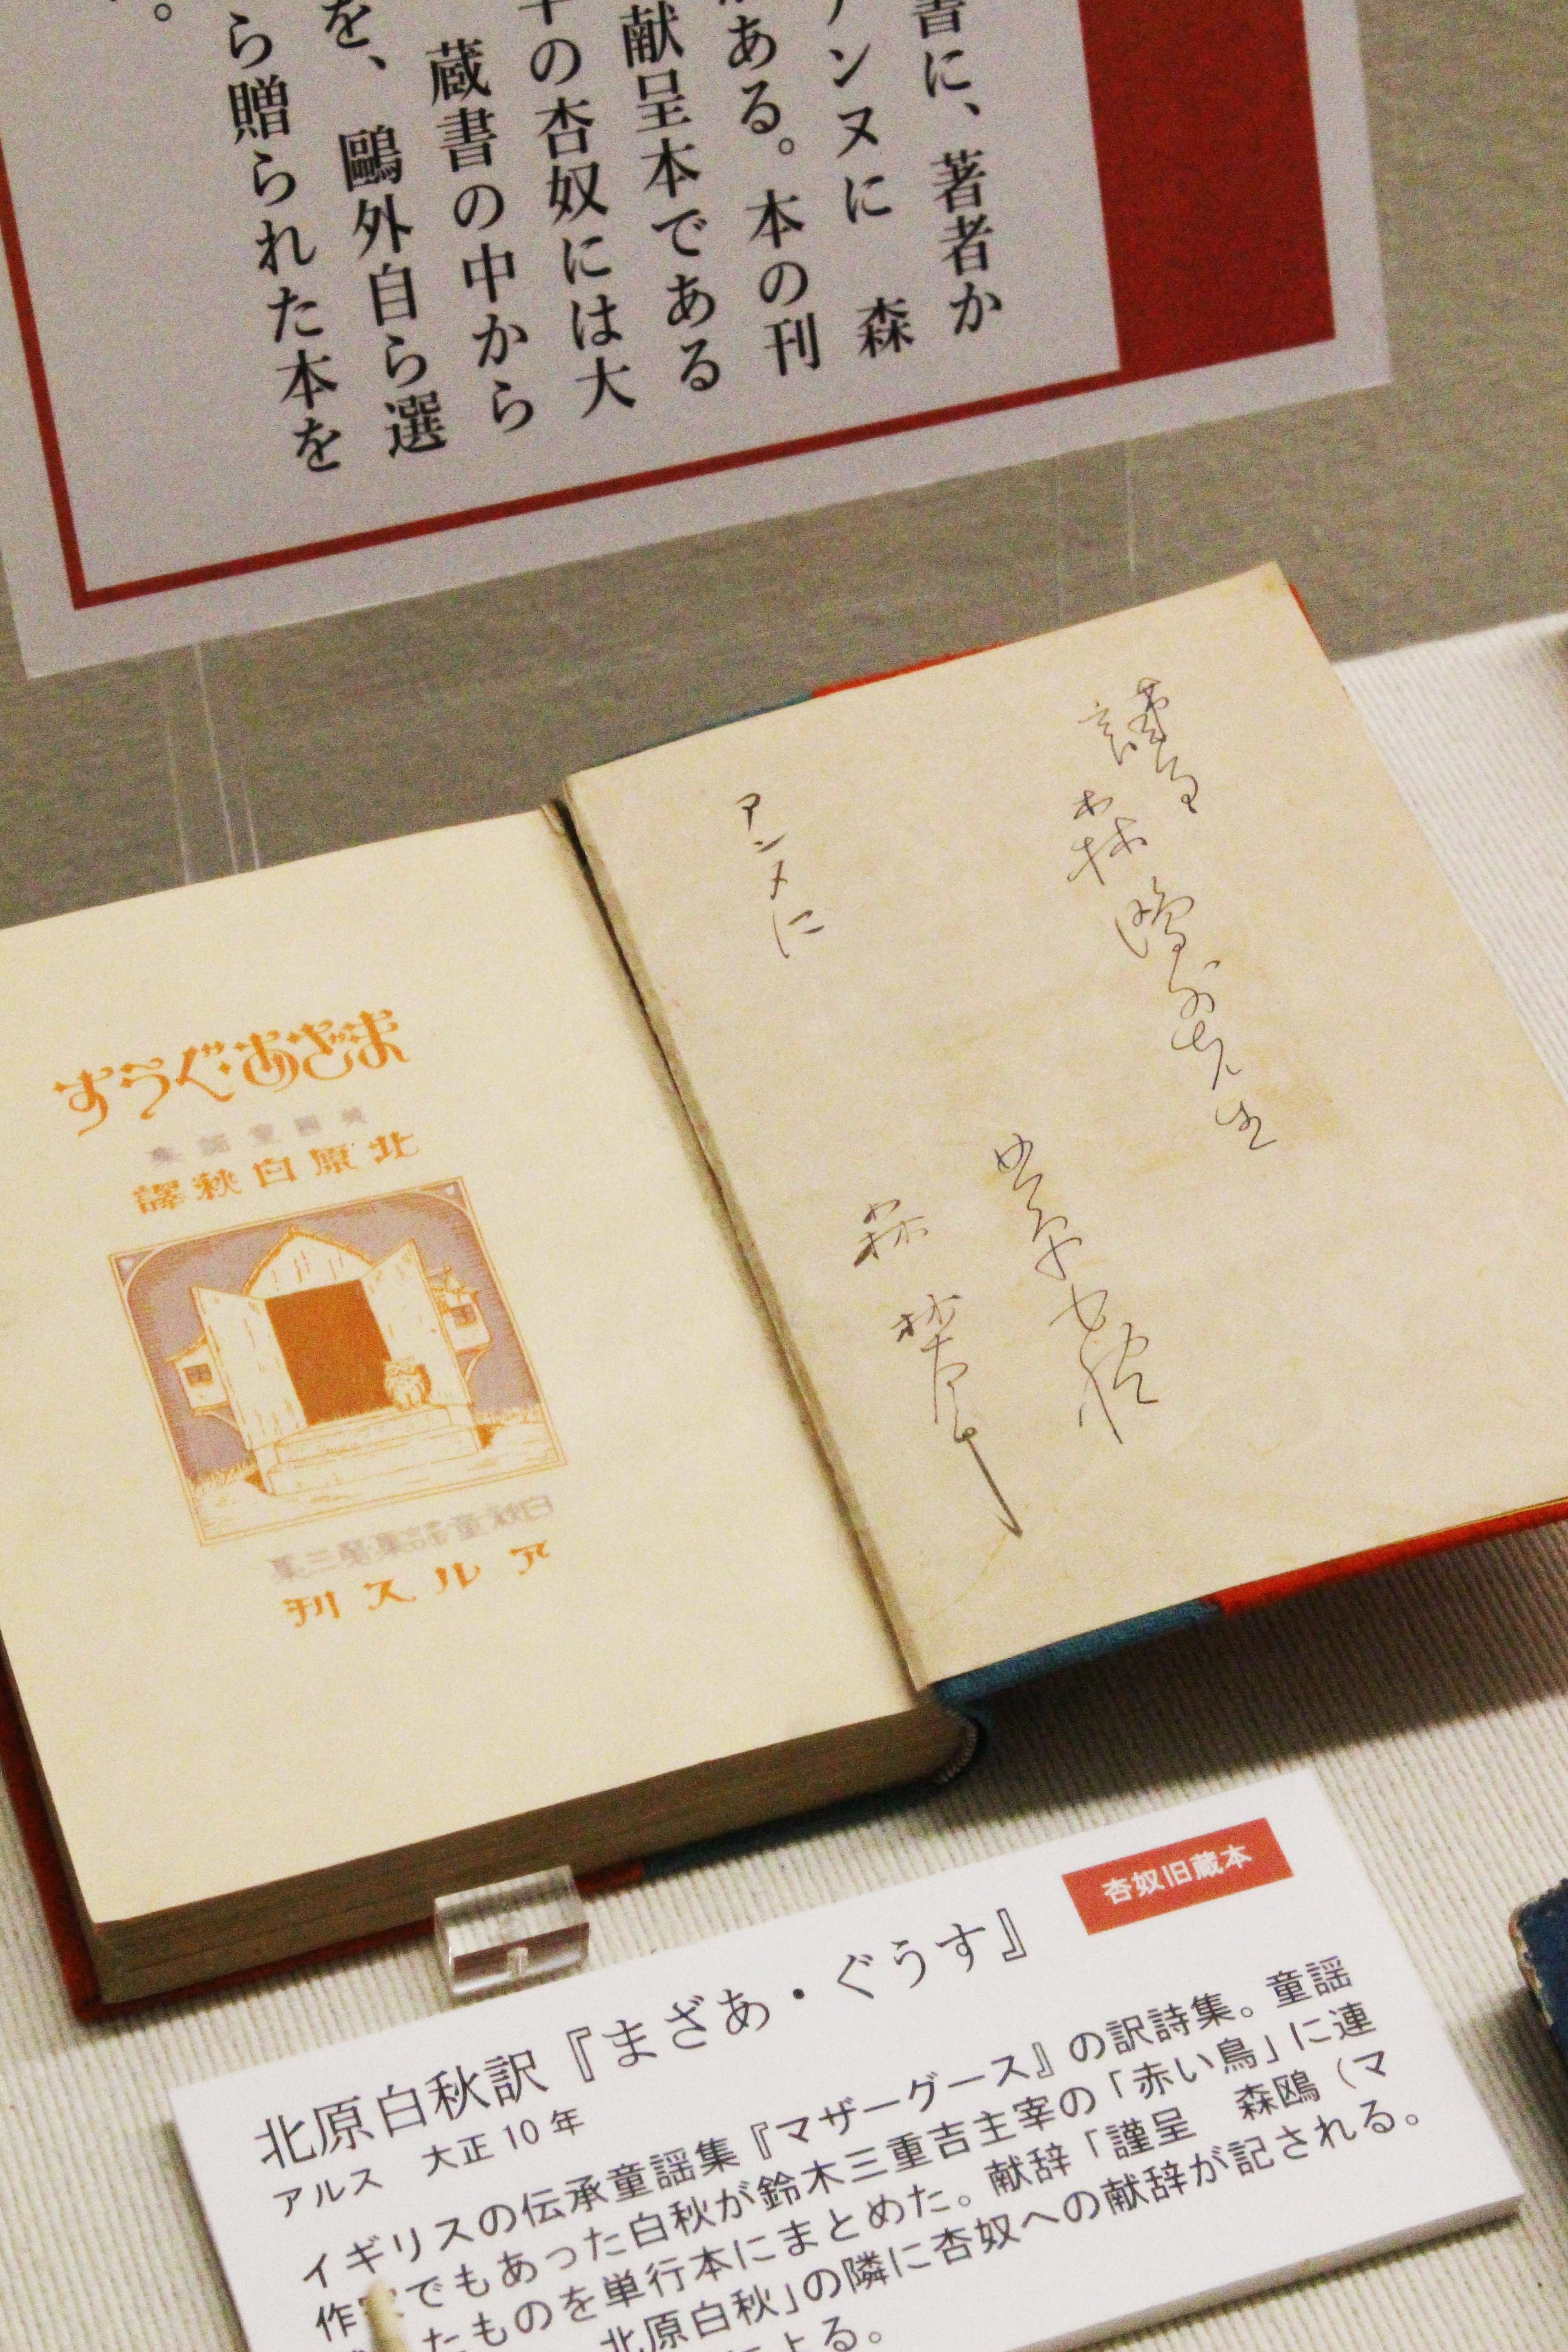 書に、著者か
アンヌに 森
ある。本の刊
献呈本である
年の杏奴には大
蔵書の中から
を、鷗外自ら選
ら贈られた本を
。
謹呈
森鷗外先生
北原白秋
アンヌに
森林太郎
まざあぐうす
英國童謠集
北原白秋譯
白秋童謠集第三集
アルス刊
杏奴旧蔵本
北原白秋訳『まざあ・ぐうす』
アルス 大正10年
イギリスの伝承童謡集『マザーグース』の訳詩集。童謡
作家でもあった白秋が鈴木三重吉主宰の「赤い鳥」に連
たものを単行本にまとめた。献辞「謹呈 森鴎（マ
北原白秋」の隣に杏奴への献辞が記される。
による。